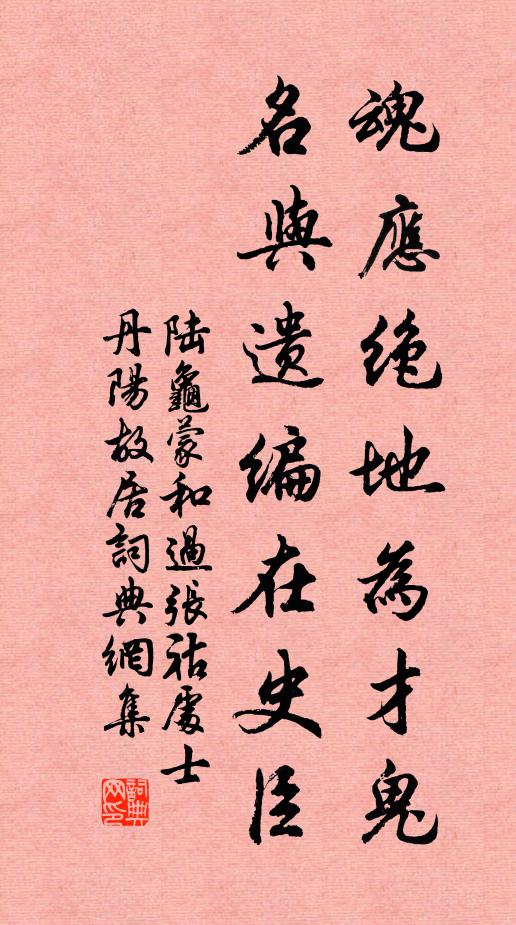 魂應絶地為才鬼
名與遺編在史臣
陆龜蒙和過張祜處士
丹陽故居詞典網集
詞典网印